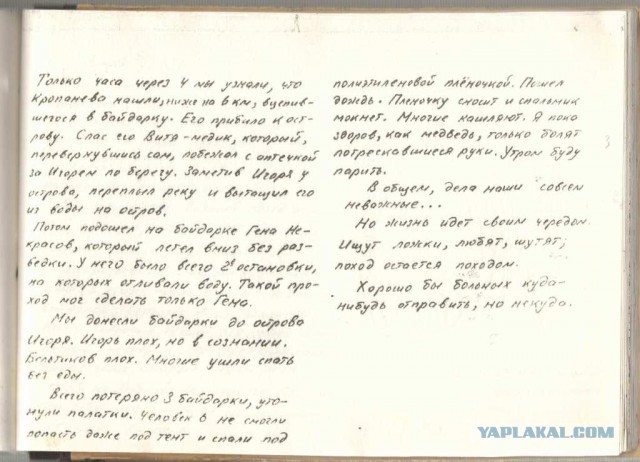 Только часа через 4 мы узнали, что
Кропанева нашли, ниже на 6 км, вцепив-
шегося в байдарку. Его прибило к ост-
рову. Спас его Витя-медик, который,
перевернувшись сам, побежал с аптечкой
за Игорем по берегу. Заметив Игоря у
острова, переплыл реку и вытащил его
из воды на остров.
Потом подошел на байдарке Гена Не-
красов, который летел вниз без раз-
ведки. У него было всего 2 остановки,
на которых отливали воду. Такой про-
ход мог сделать только Гена.
Мы донесли байдарки до острова
Игоря. Игорь плох, но в сознании.
Бельтиков плох. Многие ушли спать
без еды.
Всего потеряно 3 байдарки, уто-
нули палатки. Человек 6 не смогли
попасть даже под тент и спали под
полиэтиленовой плёночкой. Пошел
дождь. Пленочку сносит и спальник
мокнет. Многие кашляют. Я пока
здоров, как медведь, только болят
потрескавшиеся руки. Утром буду
парить.
В общем, дела наши совсем
неважные...
Но жизнь идет своим чередом.
Ищут ложки, любят, шутят;
поход остается походом.
Хорошо бы больных куда-
нибудь отправить, но некуда.
YAPLAKAL.COM